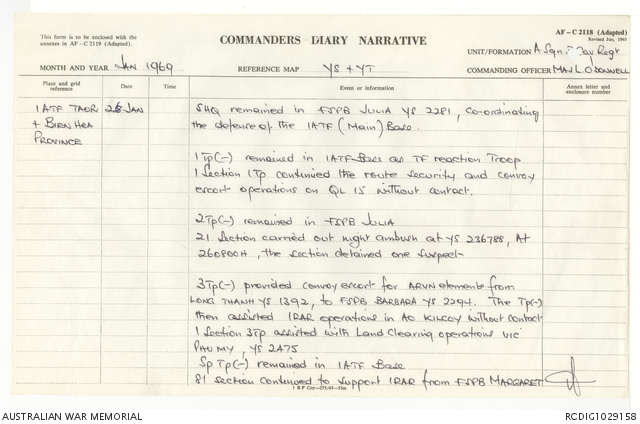 This form is to be enclosed with the
annexes in AF – C 2118 (Adapted).
COMMANDERS DIARY NARRATIVE
AF – C 2118 (Adapted)
Revised Jun, 1965
UNIT/FORMATION A Sqn 3 Cav Regt
MONTH AND YEAR JAN 1969
REFERENCE MAP YS + YT
COMMANDING OFFICER MAJ L. O'DONNELL
Place and grid
reference
Date
Time
Event or information
Annex letter and
enclosure number
1ATF TAOR 26 JAN
+ BIEN HOA
PROVINCE
SHQ remained in FSPB JULIA YS 2281, co-ordinating
the defense of the 1ATF (Main) Base.
1Tp(-) remained in 1ATF Base as TF reaction Troop
1 Section 1Tp continued the route security and convoy
escort operations on QL 15 without contact.
2Tp(-) remained in FSPB JULIA
21 Section carried out night ambush at YS 236788, At
260800H, the section detained one suspect
3Tp(-) provided convoy escort for ARVN elements from
LONG THANH YS 1392, to FSPB BARBARA YS 2294. The Tp(-)
then assisted 1RAR operations in AO KILCOY without contact
1 Section 3Tp assisted with Land Clearing operations vic
PHU MY, YS 2475
Sp Tp(-) remained in 1ATF Base
81 Section continued to support 1RAR from FSPB MARGARET
AUSTRALIAN WAR MEMORIAL
RCDIG1029158